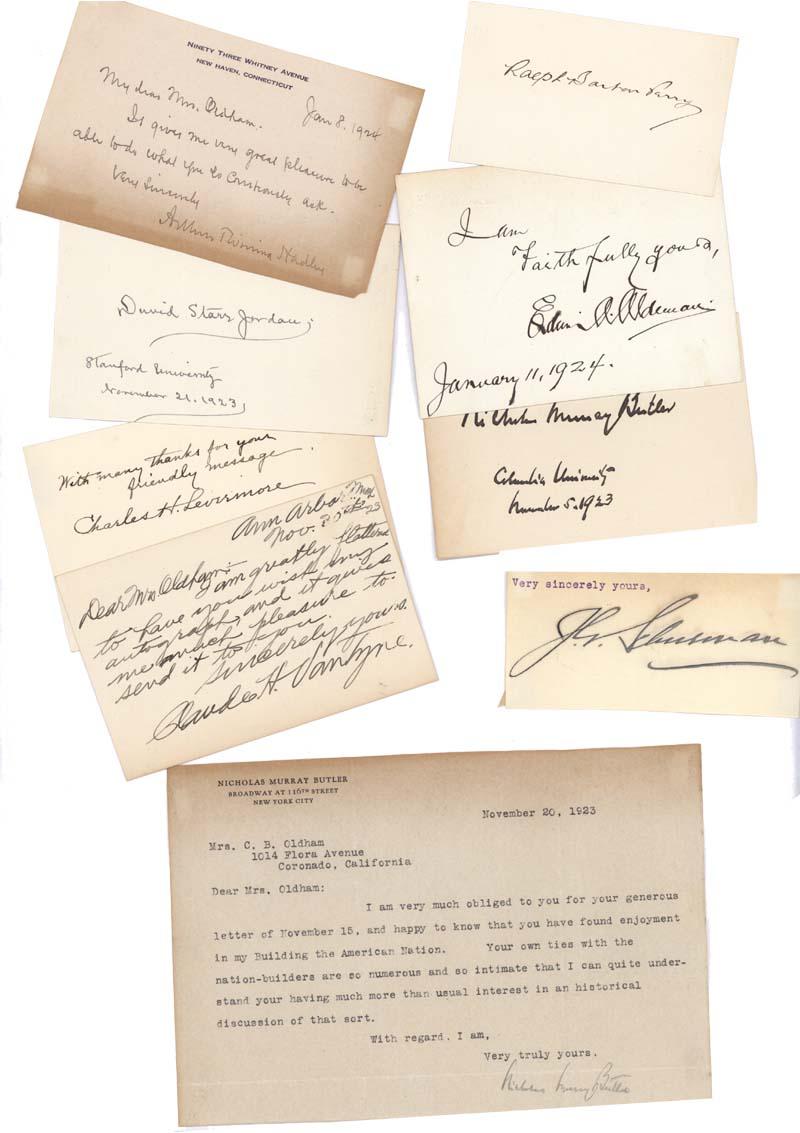 NINETY THREE WHITNEY AVENUE
NEW HAVEN, CONNECTICUT
Jan 8. 1924
My dear Mrs. Oldham.
It gives me very great pleasure to be
able to do what you so courteously ask.
Very sincerely
Arthur Twining Hadley
Ralph Barton Perry
I am
Faithfully yours,
Edwin A. Alderman.
January 11, 1924.
David Starr Jordan,
Stanford University
November 21. 1923,
Nicholas Murray Butler
Columbia University
November 5. 1923
With many thanks for your
friendly message.
Charles H. Levermore
Ann Arbor
Nov.
Dear Mrs. Oldham:
I am greatly flattered
to have you wish my
autograph, and it gives
me much pleasure to
send it to you.
Sincerely yours.
Claude H. VanTyne.
Very sincerely yours,
NICHOLAS MURRAY BUTLER
BROADWAY AT 116TH STREET
NEW YORK CITY
November 20, 1923
Mrs. C. B. Oldham
1014 Flora Avenue
Coronado, California
Dear Mrs. Oldham:
I am very much obliged to you for your generous
letter of November 15, and happy to know that you have found enjoyment
in my Building the American Nation. Your own ties with the
nation-builders are so numerous and so intimate that I can quite under-
stand your having much more than usual interest in an historical
discussion of that sort.
With regard, I am,
Very truly yours.
Nicholas Murray Butler